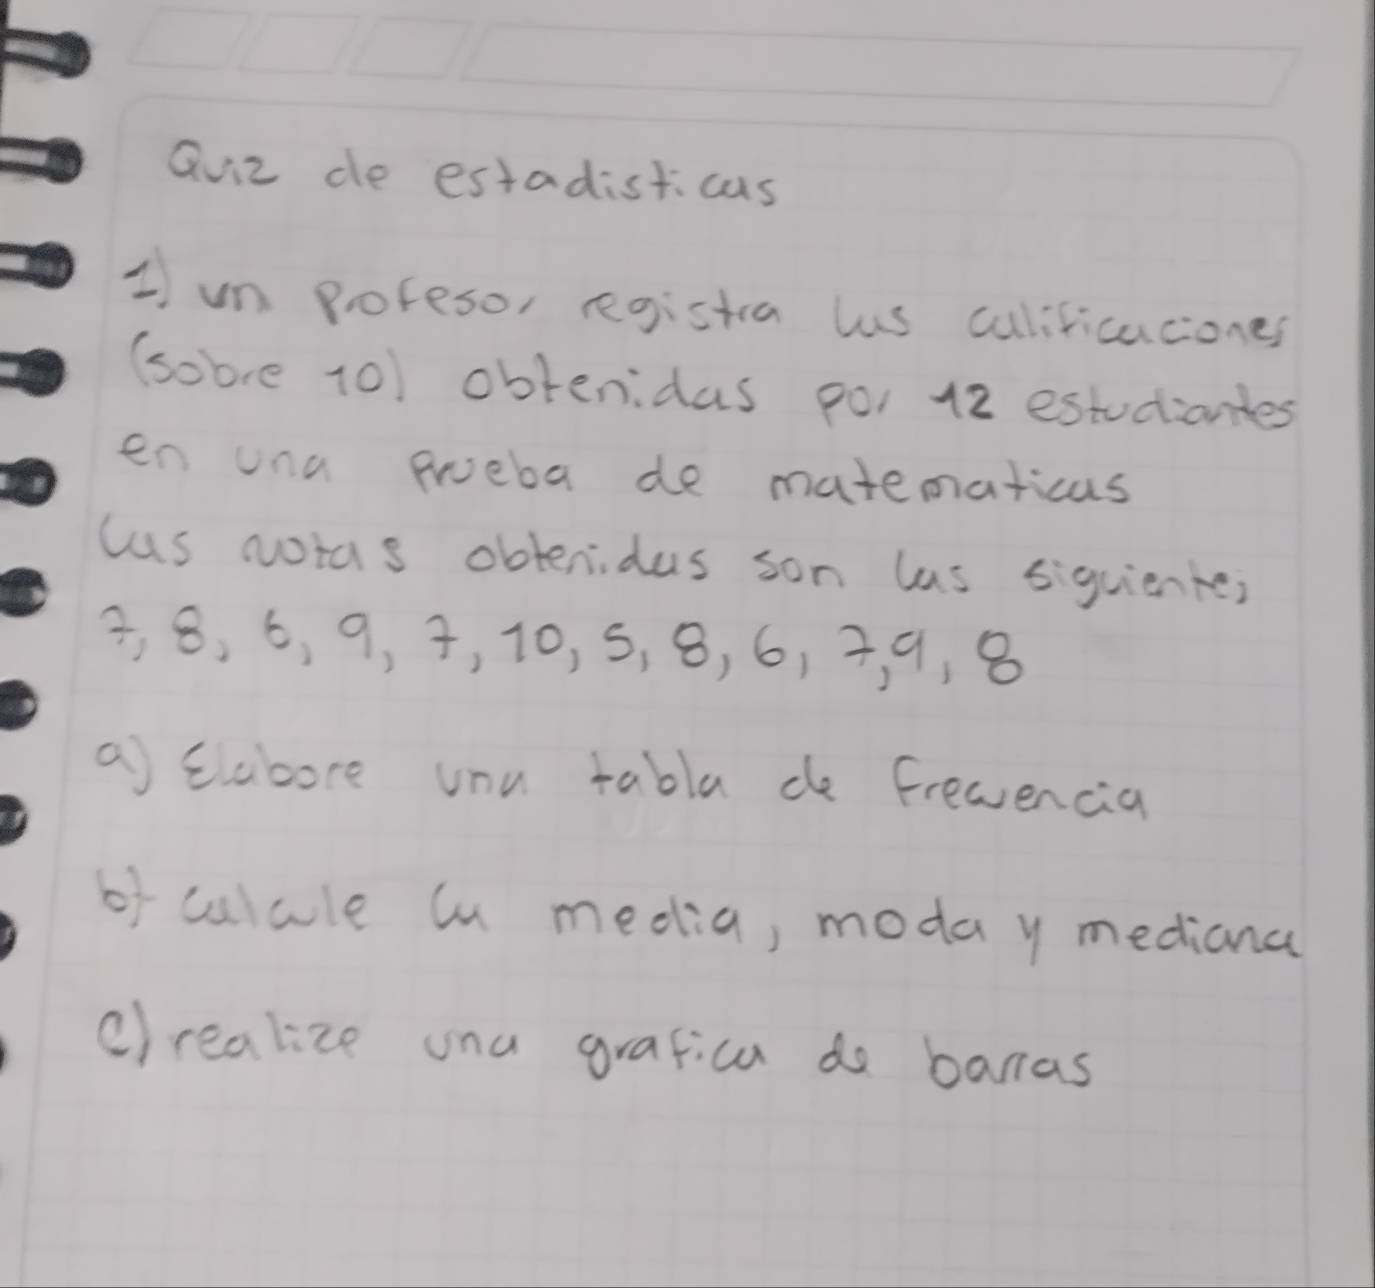 Quiz de estadisticas
1) un Profesor registra las calificaciones
(sobre 10) obtenidas por 12 estudiantes
en una Prueba de matematicas
las notas obtenidas son las siguientes
7, 8, 6, 9, 7, 10, 5, 8, 6, 7, 9, 8
a) Elabore una tabla de frecuencia
b) calcule la media, moda y mediana
c) realize una grafica de barras